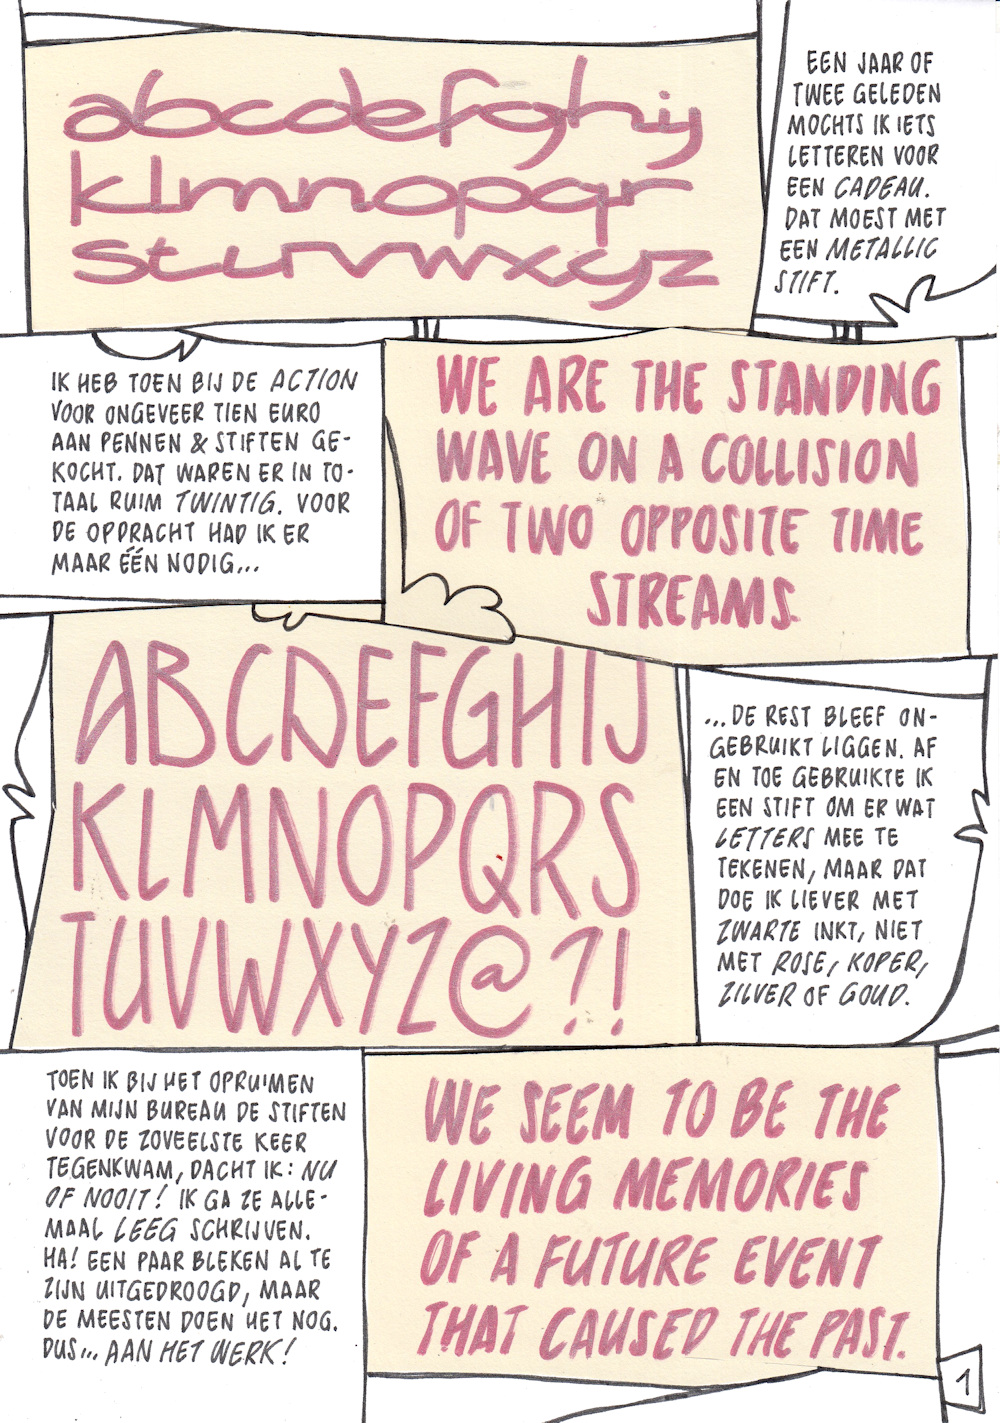 abcdefghij
klmnopqr
stuvwxyz
EEN JAAR OF
TWEE GELEDEN
MOCHTS IK IETS
LETTEREN VOOR
EEN CADEAU.
DAT MOEST MET
EEN METALLIC
STIFT.
IK HEB TOEN BIJ DE ACTION
VOOR ONGEVEER TIEN EURO
AAN PENNEN & STIFTEN GE-
KOCHT. DAT WAREN ER IN TO-
TAAL RUIM TWINTIG. VOOR
DE OPDRACHT HAD IK ER
MAAR ÉÉN NODIG...
WE ARE THE STANDING
WAVE ON A COLLISION
OF TWO OPPOSITE TIME
STREAMS.
ABCDEFGHIJ
KLMNOPQRS
TUVWXYZ@?!
...DE REST BLEEF ON-
GEBRUIKT LIGGEN. AF
EN TOE GEBRUIKTE IK
EEN STIFT OM ER WAT
LETTERS MEE TE
TEKENEN, MAAR DAT
DOE IK LIEVER MET
ZWARTE INKT, NIET
MET ROSE, KOPER,
ZILVER OF GOUD.
TOEN IK BIJ HET OPRUIMEN
VAN MIJN BUREAU DE STIFTEN
VOOR DE ZOVEELSTE KEER
TEGENKWAM, DACHT IK: NU
OF NOOIT! IK GA ZE ALLE-
MAAL LEEG SCHRIJVEN.
HA! EEN PAAR BLEKEN AL TE
ZIJN UITGEDROOGD, MAAR
DE MEESTEN DOEN HET NOG.
DUS... AAN HET WERK!
WE SEEM TO BE THE
LIVING MEMORIES
OF A FUTURE EVENT
THAT CAUSED THE PAST.
1